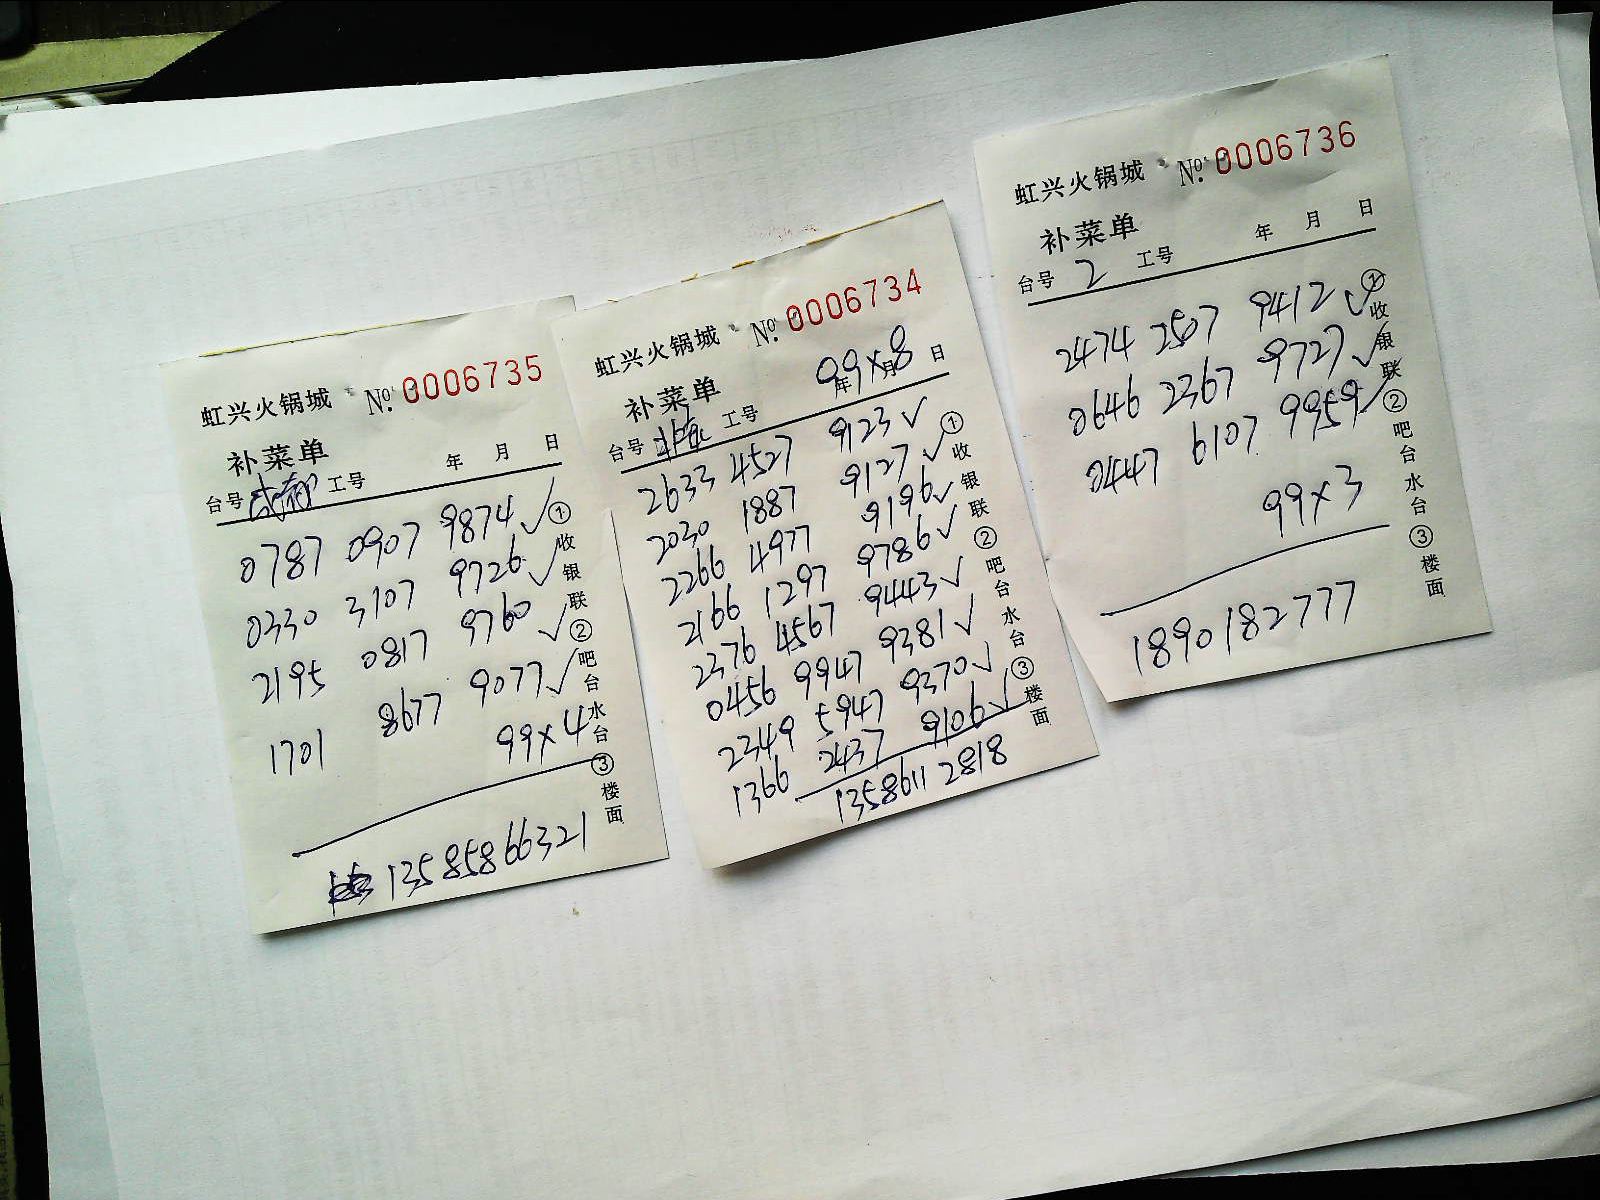 虹兴火锅城 No. 0006735
补菜单
年 月 日
台号 成都 工号
0787 0907 9874 ✓
0330 3107 9726 ✓
2195 0817 9760 ✓
1701 8677 9077 ✓
99×4
13585866321
①收银联 ②吧台水台 ③楼面
虹兴火锅城 No. 0006734
补菜单
99×8
年 月 日
台号 北京 工号
2633 4527 9123 ✓
2030 1887 9127 ✓
2266 4977 9196 ✓
2166 1297 9786 ✓
2376 4567 9443 ✓
0456 9947 9381 ✓
2349 5947 9370 ✓
1366 2437 9106 ✓
13586112818
①收银联 ②吧台水台 ③楼面
虹兴火锅城 No. 0006736
补菜单
年 月 日
台号 2 工号
2474 2507 9412 ✓
0646 2367 9727 ✓
0447 6107 9959 ✓
99×3
1890182777
①收银联 ②吧台水台 ③楼面